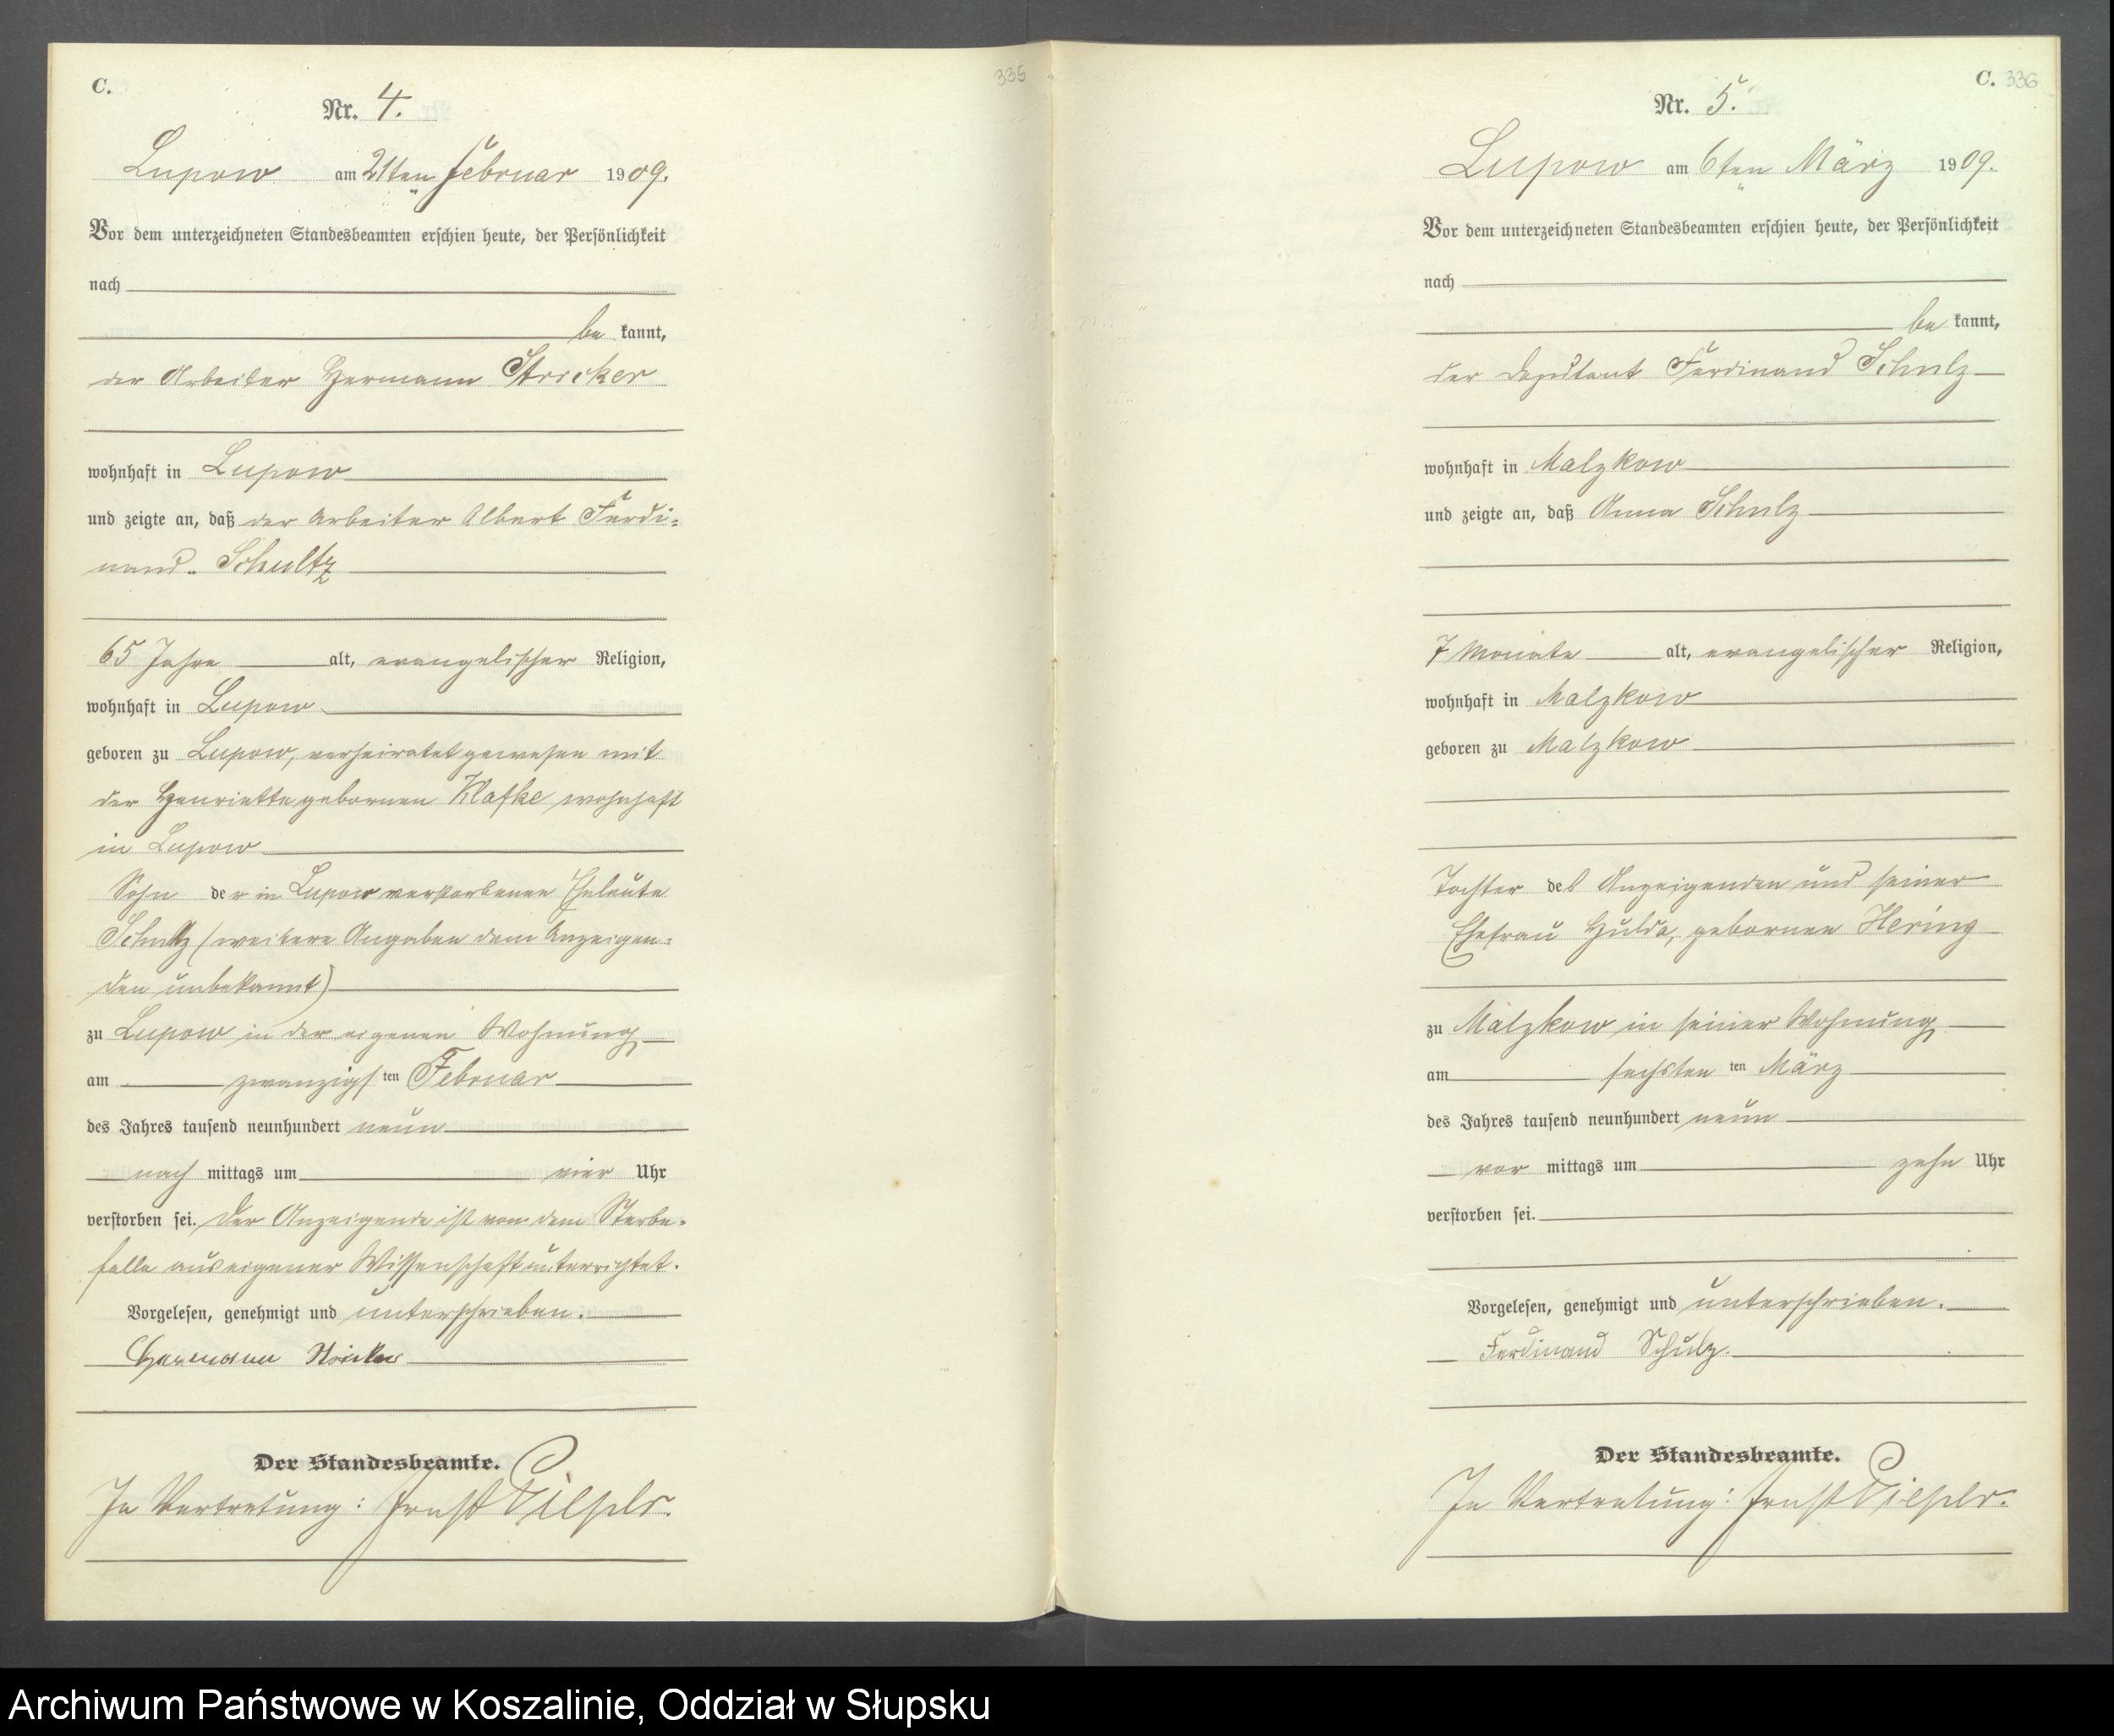 C.
335
Nr. 4.
Lupow am 21ten Februar 1909.
Vor dem unterzeichneten Standesbeamten erschien heute, der Persönlichkeit
nach
be kannt,
der Arbeiter Hermann Stricker
wohnhaft in Lupow
und zeigte an, daß der Arbeiter Albert Ferdi-
nand Schultz
65 Jahre alt, evangelischer Religion,
wohnhaft in Lupow
geboren zu Lupow, verheiratet gewesen mit
der Henriette gebornen Klafke wohnhaft
in Lupow
Sohn der in Lupow verstorbenen Eheleute
Schultz (weitere Angaben dem Anzeigen-
den unbekannt)
zu Lupow in der eigenen Wohnung
am zwanzigsten Februar
des Jahres tausend neunhundert neun
nach mittags um vier Uhr
verstorben sei. Der Anzeigende ist von dem Sterbe-
falle aus eigener Wissenschaft unterrichtet.
Vorgelesen, genehmigt und unterschrieben.
Hermann Stricker
Der Standesbeamte.
In Vertretung: Ernst
C. 336
Nr. 5.
Lupow am 6ten März 1909.
Vor dem unterzeichneten Standesbeamten erschien heute, der Persönlichkeit
nach
be kannt,
der Deputant Ferdinand Schulz
wohnhaft in Malzkow
und zeigte an, daß Anna Schulz
7 Monate alt, evangelischer Religion,
wohnhaft in Malzkow
geboren zu Malzkow
Tochter des Anzeigenden und seiner
Ehefrau Hulda, gebornen Hering
zu Malzkow in seiner Wohnung
am sechsten ten März
des Jahres tausend neunhundert neun
vor mittags um zehn Uhr
verstorben sei.
Vorgelesen, genehmigt und unterschrieben.
Ferdinand Schulz.
Der Standesbeamte.
In Vertretung: Ernst
Archiwum Państwowe w Koszalinie, Oddział w Słupsku